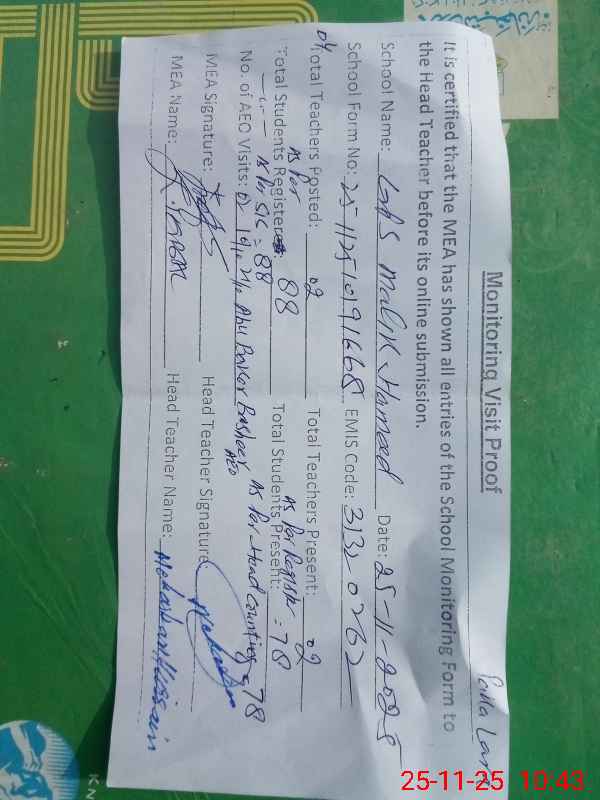 Monitoring Visit Proof
It is certified that the MEA has shown all entries of the School Monitoring Form to
the Head Teacher before its online submission.
School Name: GPS Malik Hameed Date: 25-11-2025
School Form No: EMIS Code: 31320262
Total Teachers Posted: 02 Total Teachers Present: 02
As per As per Register = 78
Total Students Registered: 88 Total Students Present:
As per SIS = 88 As per Head Counting = 78
No. of AEO Visits: 02 Abu Bakar Basheer
AEO
MEA Signature: Head Teacher Signature
MEA Name: Head Teacher Name: Hussain
25-11-25 10:43